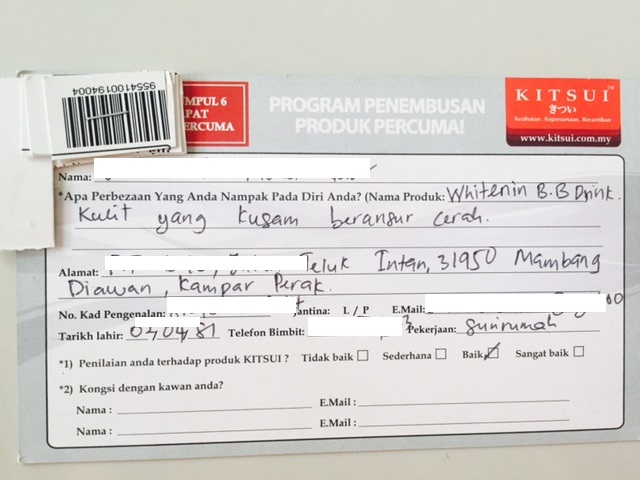 9554100194004
MPUL 6
PAT
ERCUMA
PROGRAM PENEMBUSAN
PRODUK PERCUMA!
KITSUI
きつい
Kesihatan . Keperunasan . Kecantikan
www.kitsui.com.my
Nama:
*Apa Perbezaan Yang Anda Nampak Pada Diri Anda? (Nama Produk: Whitenin B.B Drink.
Kulit yang kusam beransur cerah.
Alamat: Teluk Intan, 31950 Mambang
Diawan, Kampar Perak.
No. Kad Pengenalan: antina: L / P E.Mail:
Tarikh lahir: 070481 Telefon Bimbit: Pekerjaan: Surirumah
*1) Penilaian anda terhadap produk KITSUI ? Tidak baik Sederhana Baik Sangat baik
*2) Kongsi dengan kawan anda?
Nama : E.Mail :
Nama : E.Mail :